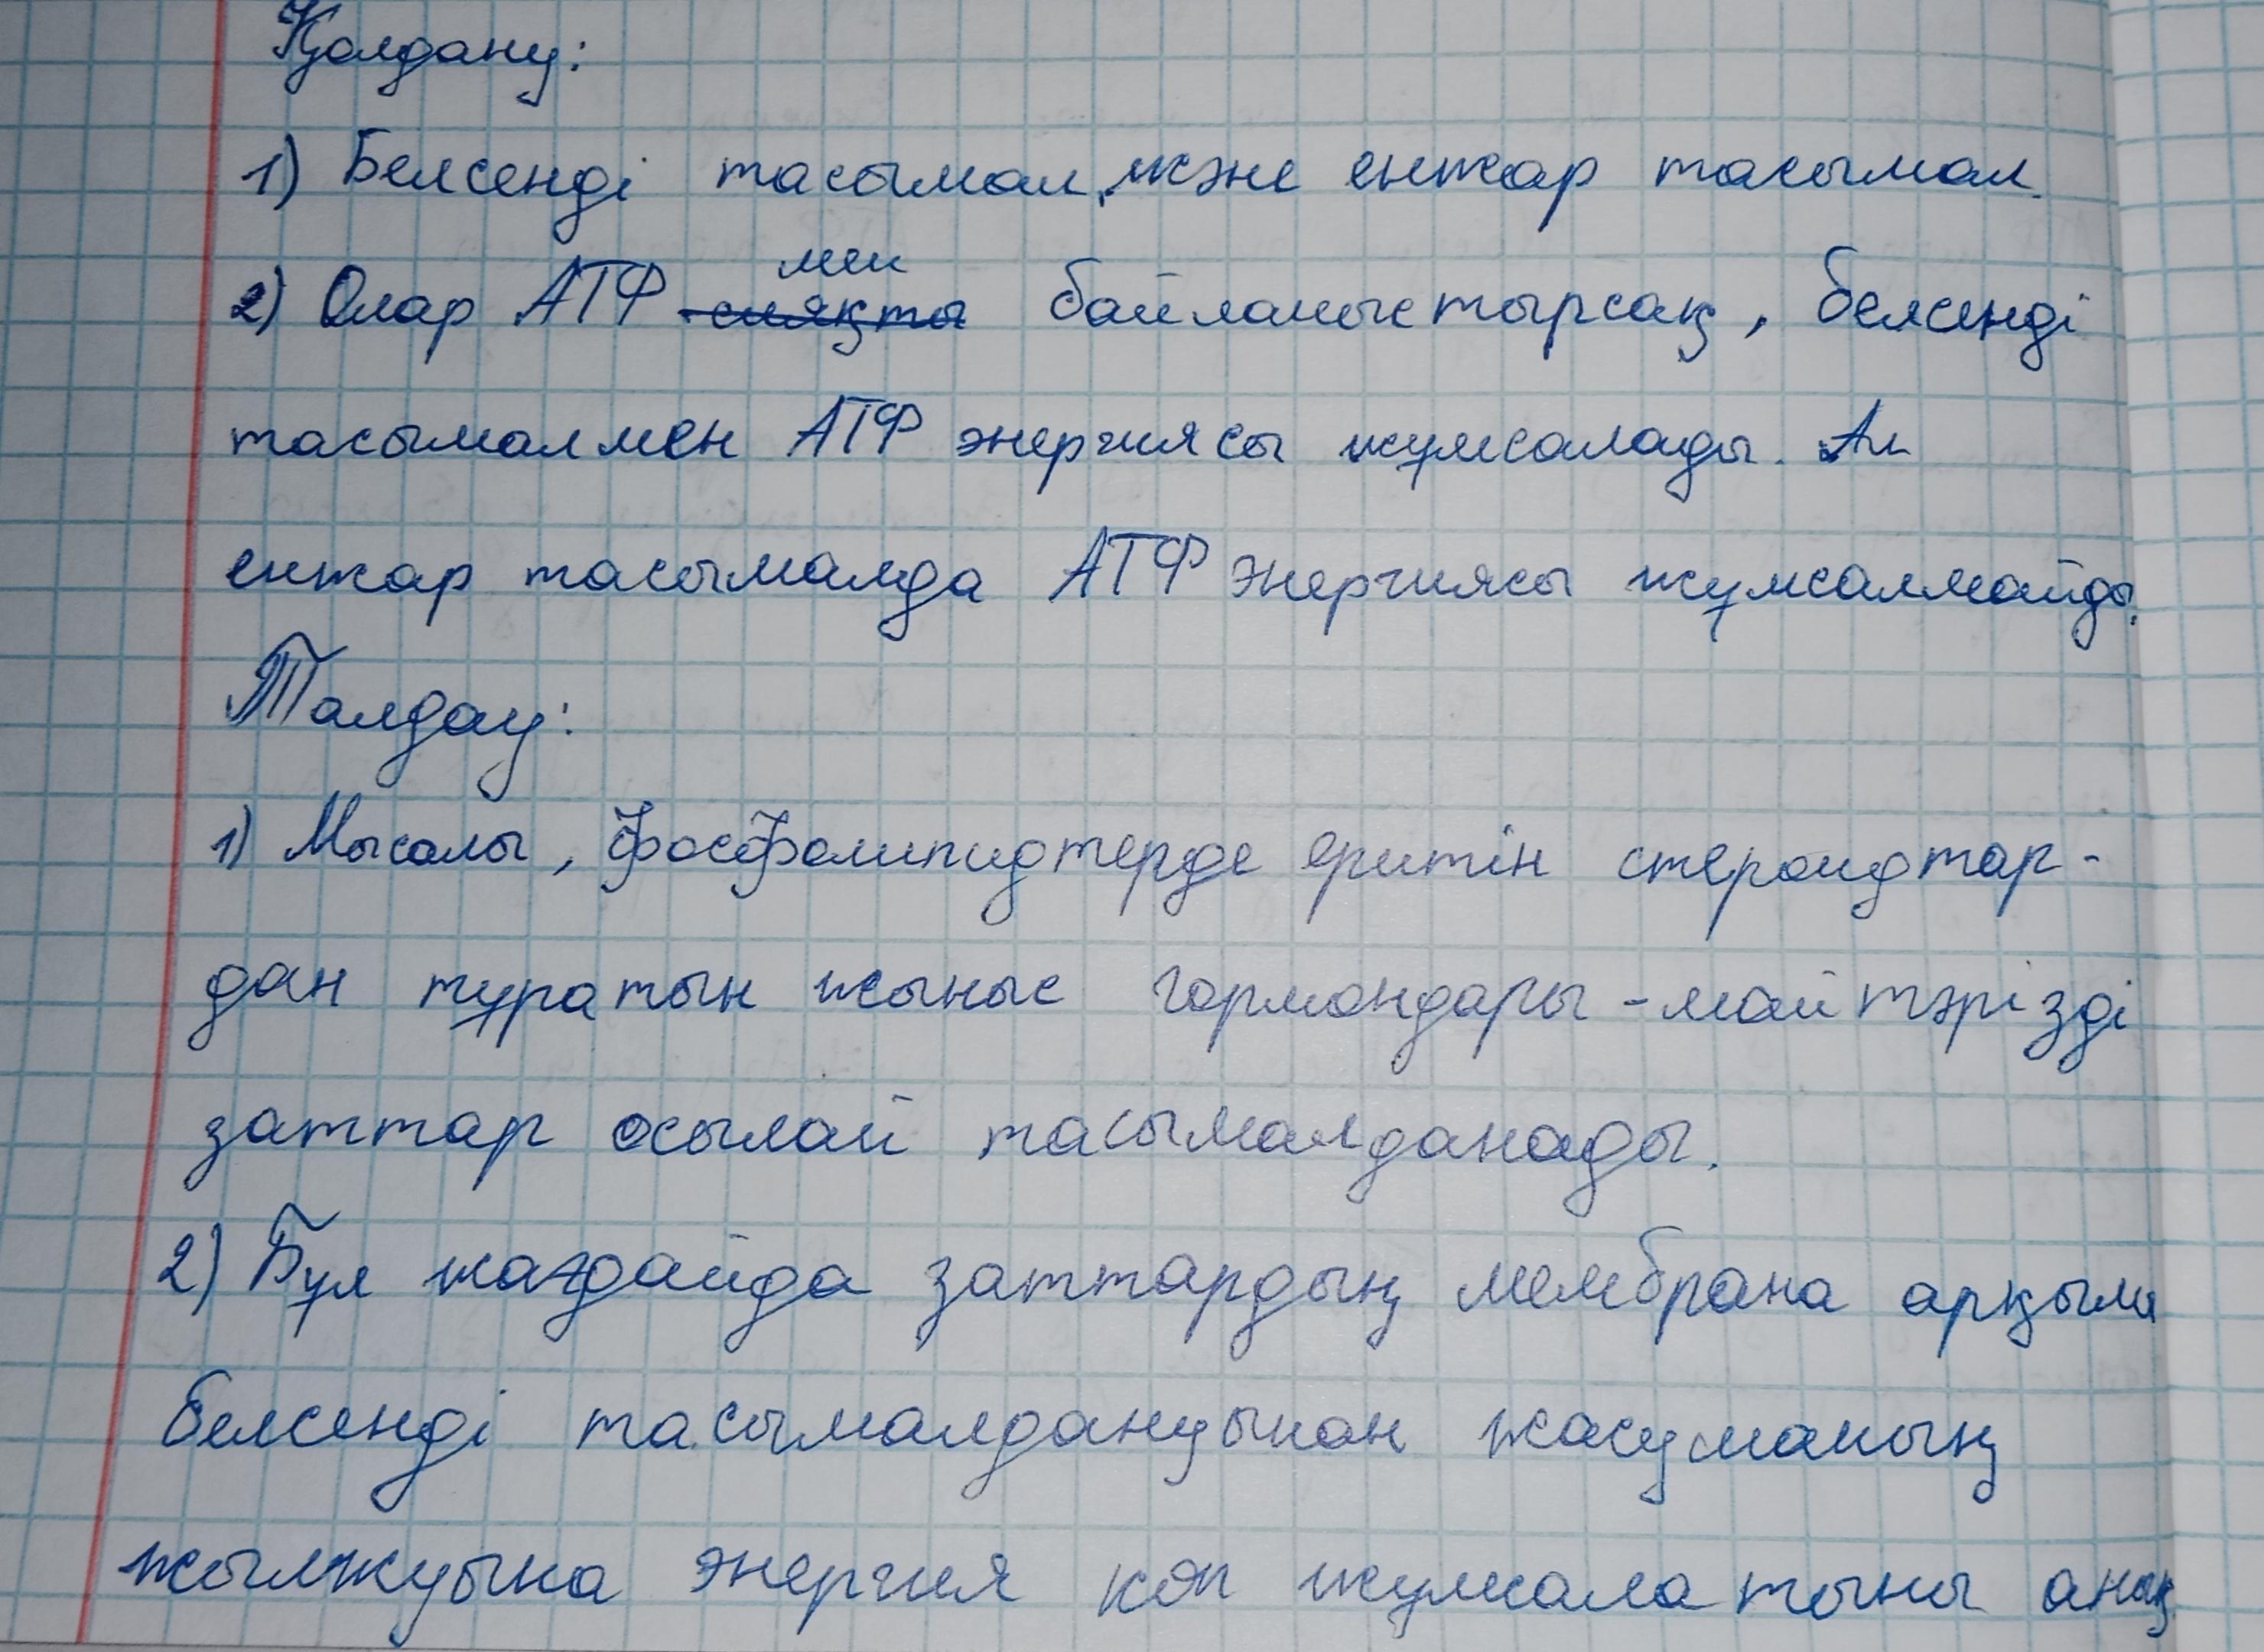 Қолдану:
1) Белсенді тасымал, және енжар тасымал.
мен
2) Олар АТФ сияқты байланыстырсақ, белсенді
тасымалмен АТФ энергиясы жұмсалады. Ал
енжар тасымалда АТФ энергиясы жұмсалмайды.
Талдау:
1) Мысалы, фосфолипидтерде еритін стероидтар-
дан тұратын жыныс гормондары - май тәрізді
заттар осылай тасымалданады.
2) Бұл жағдайда заттардың мембрана арқылы
белсенді тасымалдануынан жасушаның
жылжуына энергия көп жұмсалатыны анық